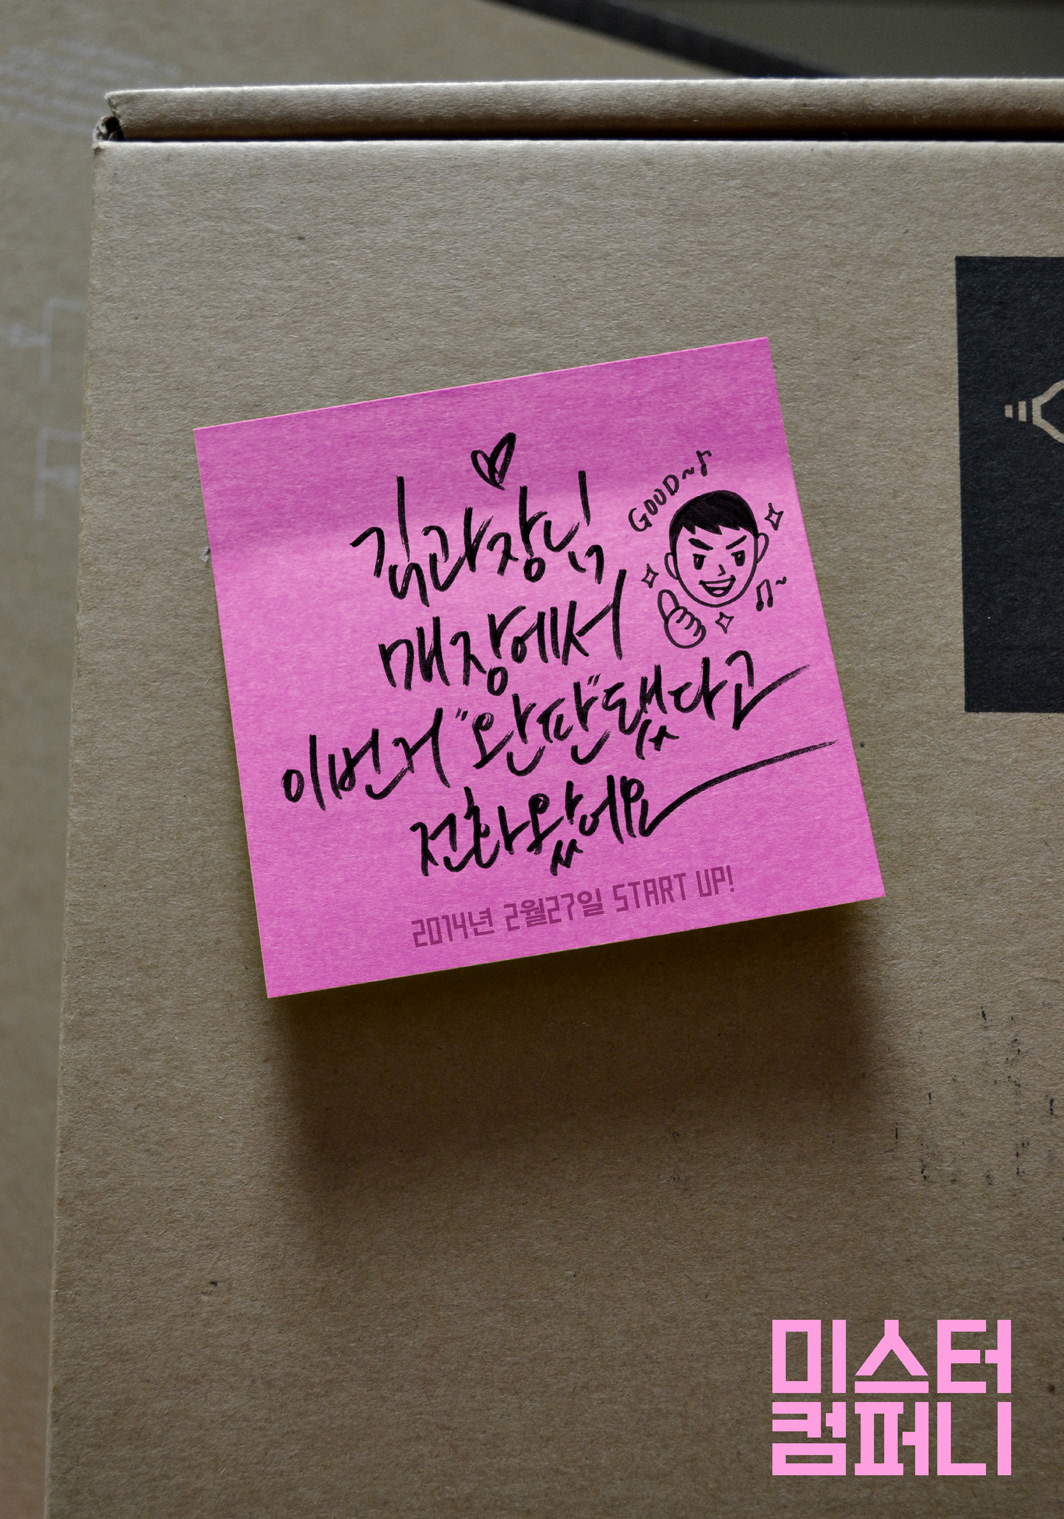 김과장님
GOOD~♪
매장에서
이번거 "완판"됐다고
전화왔어요
2014년 2월27일 START UP!
미스터
컴퍼니